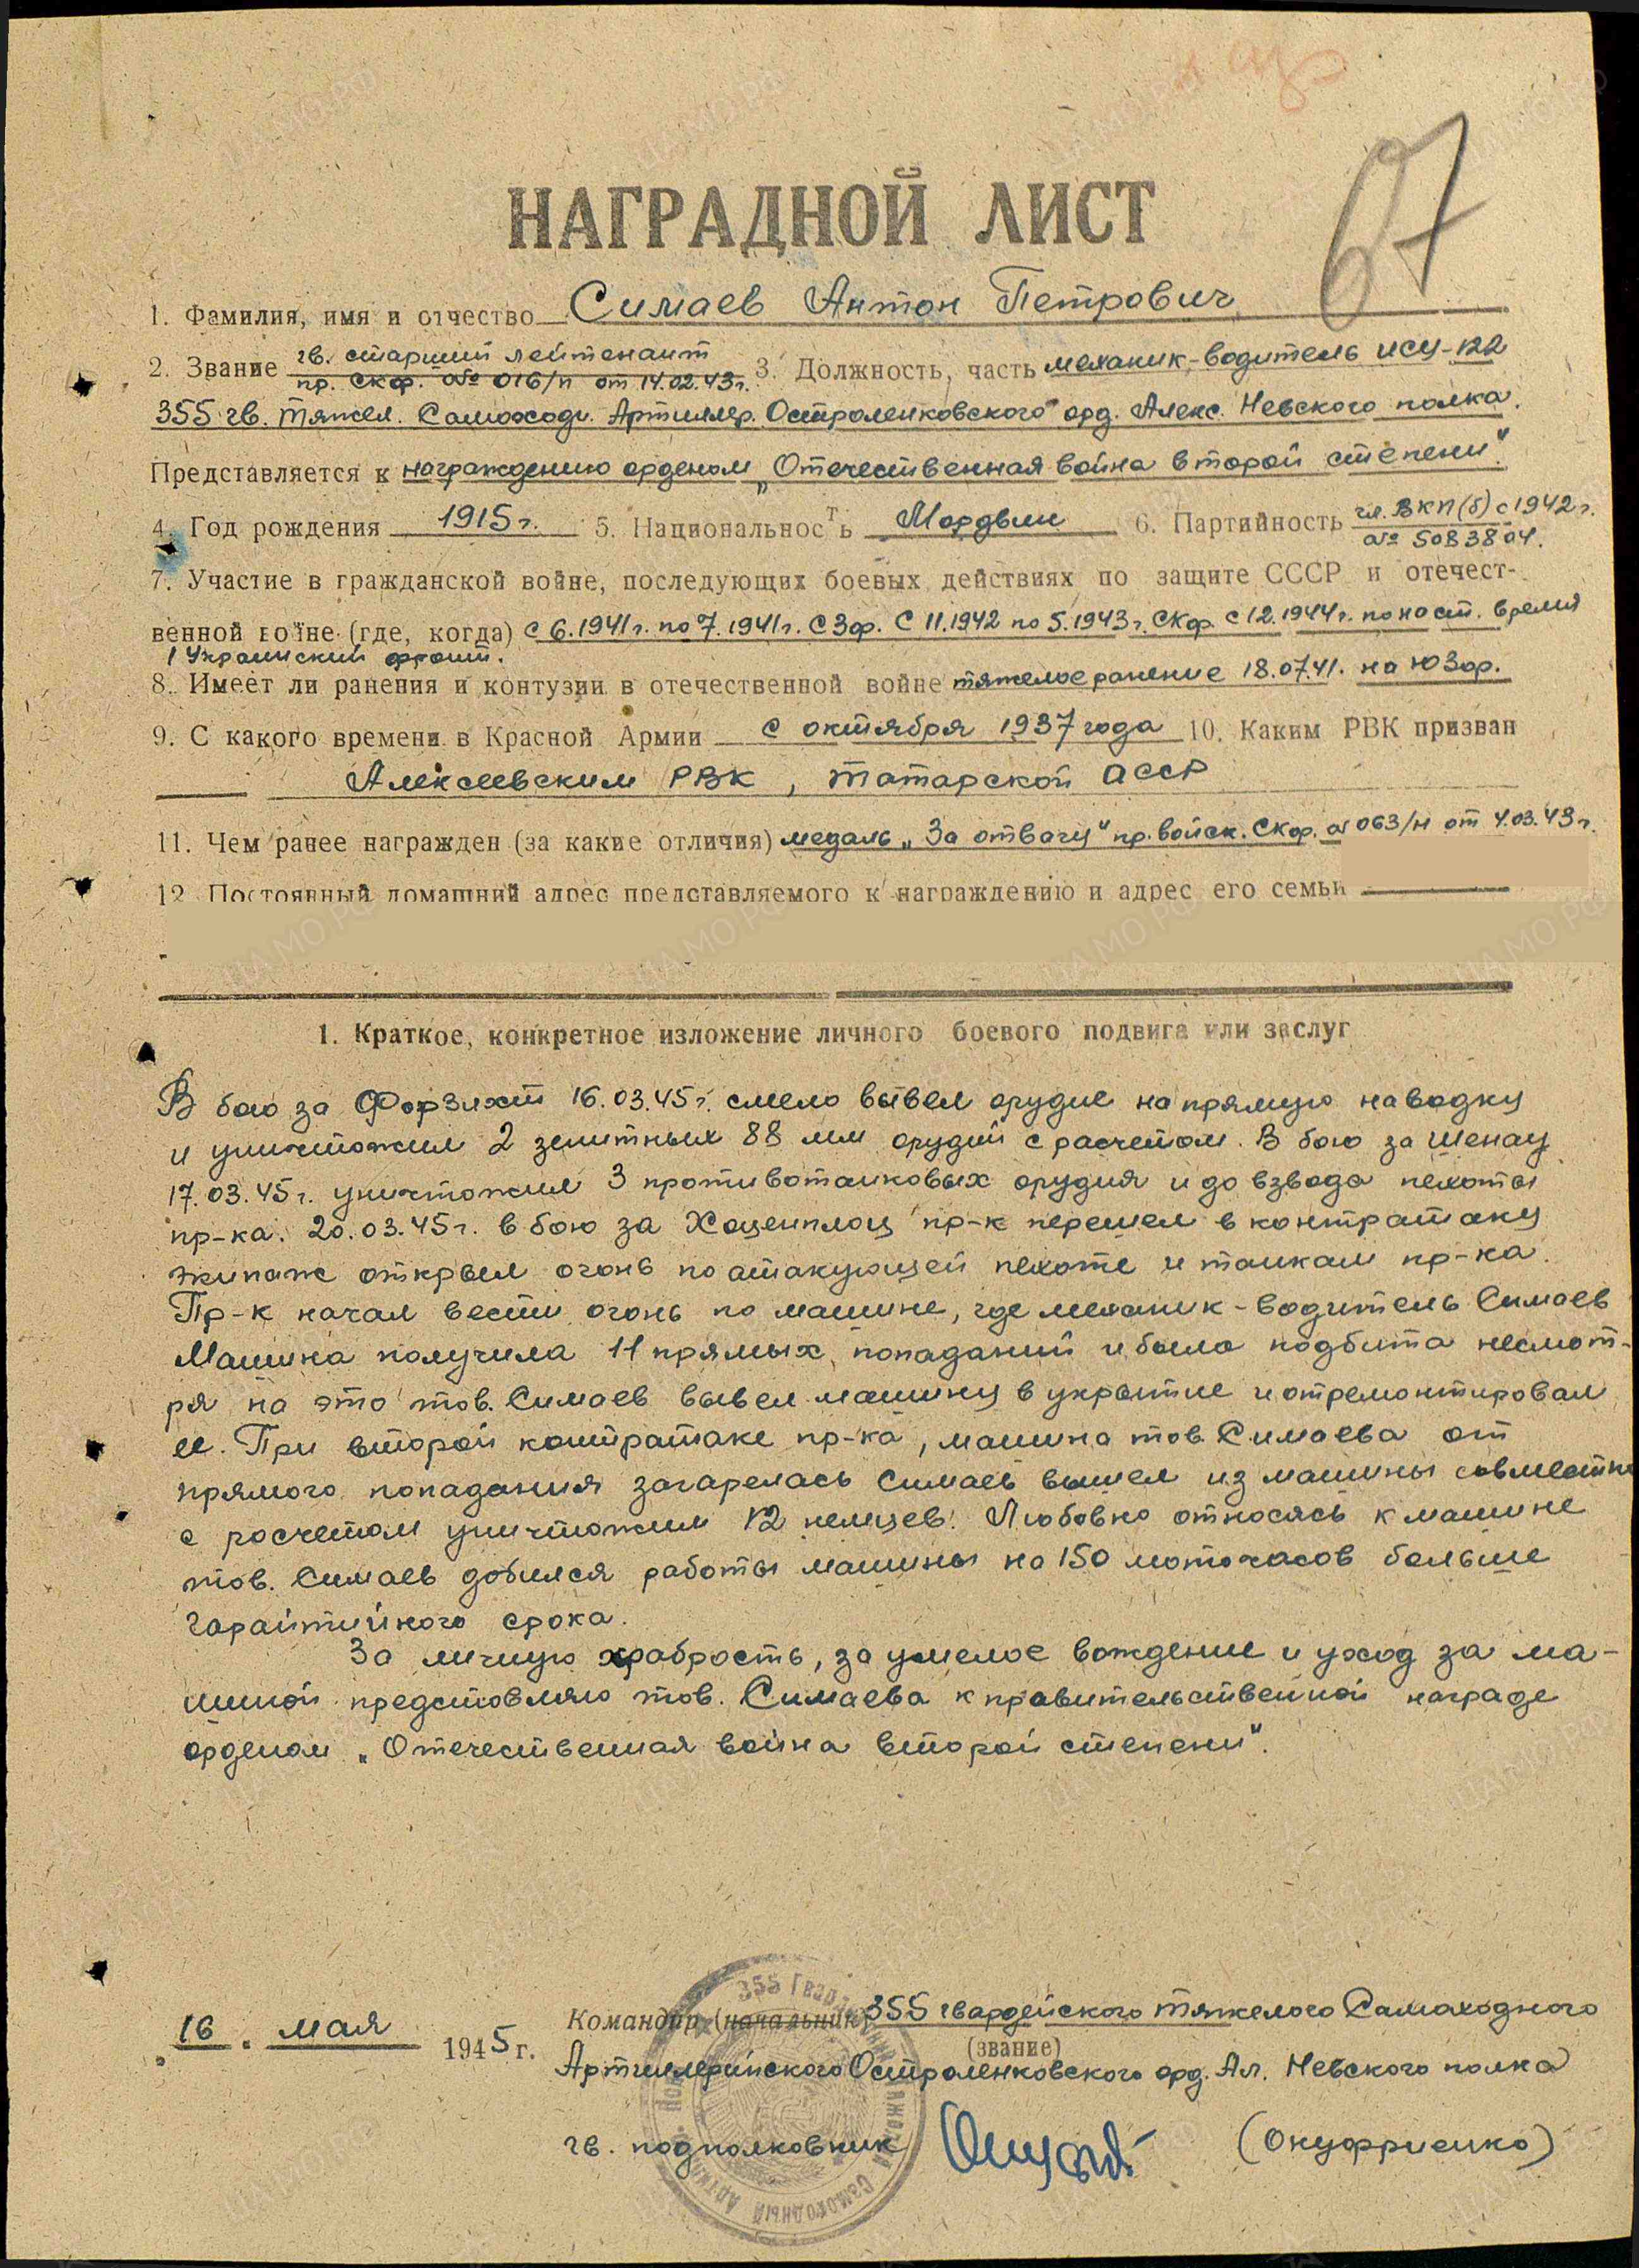 67
НАГРАДНОЙ ЛИСТ
1. Фамилия, имя и отчество Симаев Антон Петрович
2. Звание гв. старший лейтенант 3. Должность, часть механик-водитель ИСУ-122
пр. СКФ. № 016/п от 14.02.43г.
355 гв. тяжел. Самоходн. Артиллер. Остроленковского орд. Алекс. Невского полка.
Представляется к награждению орденом „Отечественная война второй степени".
4. Год рождения 1915г. 5. Национальность Мордвин 6. Партийность чл. ВКП(б) с 1942г.
№ 5083804.
7. Участие в гражданской войне, последующих боевых действиях по защите СССР и отечест-
венной войне (где, когда) с 6.1941г. по 7.1941г. СЗФ. С 11.1942 по 5.1943г. СКФ. с 12.1944г. по наст. время
1 Украинский фронт.
8. Имеет ли ранения и контузии в отечественной войне тяжелое ранение 18.07.41. на ЮЗФ.
9. С какого времени в Красной Армии с октября 1937 года 10. Каким РВК призван
Алексеевским РВК, Татарской АССР
11. Чем ранее награжден (за какие отличия) медаль „За отвагу" пр. войск. СКФ. № 063/н от 4.03.43г.
12. Постоянный домашний адрес представляемого к награждению и адрес его семьи
1. Краткое, конкретное изложение личного боевого подвига или заслуг
В бою за Форзихт 16.03.45г. смело вывел орудие на прямую наводку
и уничтожил 2 зенитных 88 мм орудий с расчетом. В бою за Шенау
17.03.45г. уничтожил 3 противотанковых орудия и до взвода пехоты
пр-ка. 20.03.45г. в бою за Хоценплоц пр-к перешел в контратаку
экипаж открыл огонь по атакующей пехоте и танкам пр-ка.
Пр-к начал вести огонь по машине, где механик-водитель Симаев
Машина получила 11 прямых попаданий и была подбита несмот-
ря на это тов. Симаев вывел машину в укрытие и отремонтировал
ее. При второй контратаке пр-ка, машина тов. Симаева от
прямого попадания загорелась Симаев вышел из машины совместно
с росчетом уничтожил 12 немцев. Любовно относясь к машине
тов. Симаев добился работы машины на 150 моточасов больше
гарантийного срока.
За личную храбрость, за умелое вождение и уход за ма-
шиной представляю тов. Симаева к правительственной награде
орденом „Отечественная война второй степени".
16. мая 1945г. Командир (начальник) 355 гвардейского тяжелого Самоходного
(звание)
Артиллерийского Остроленковского орд. Ал. Невского полка
гв. подполковник (Окуфриенко)
ЦАМО РФ